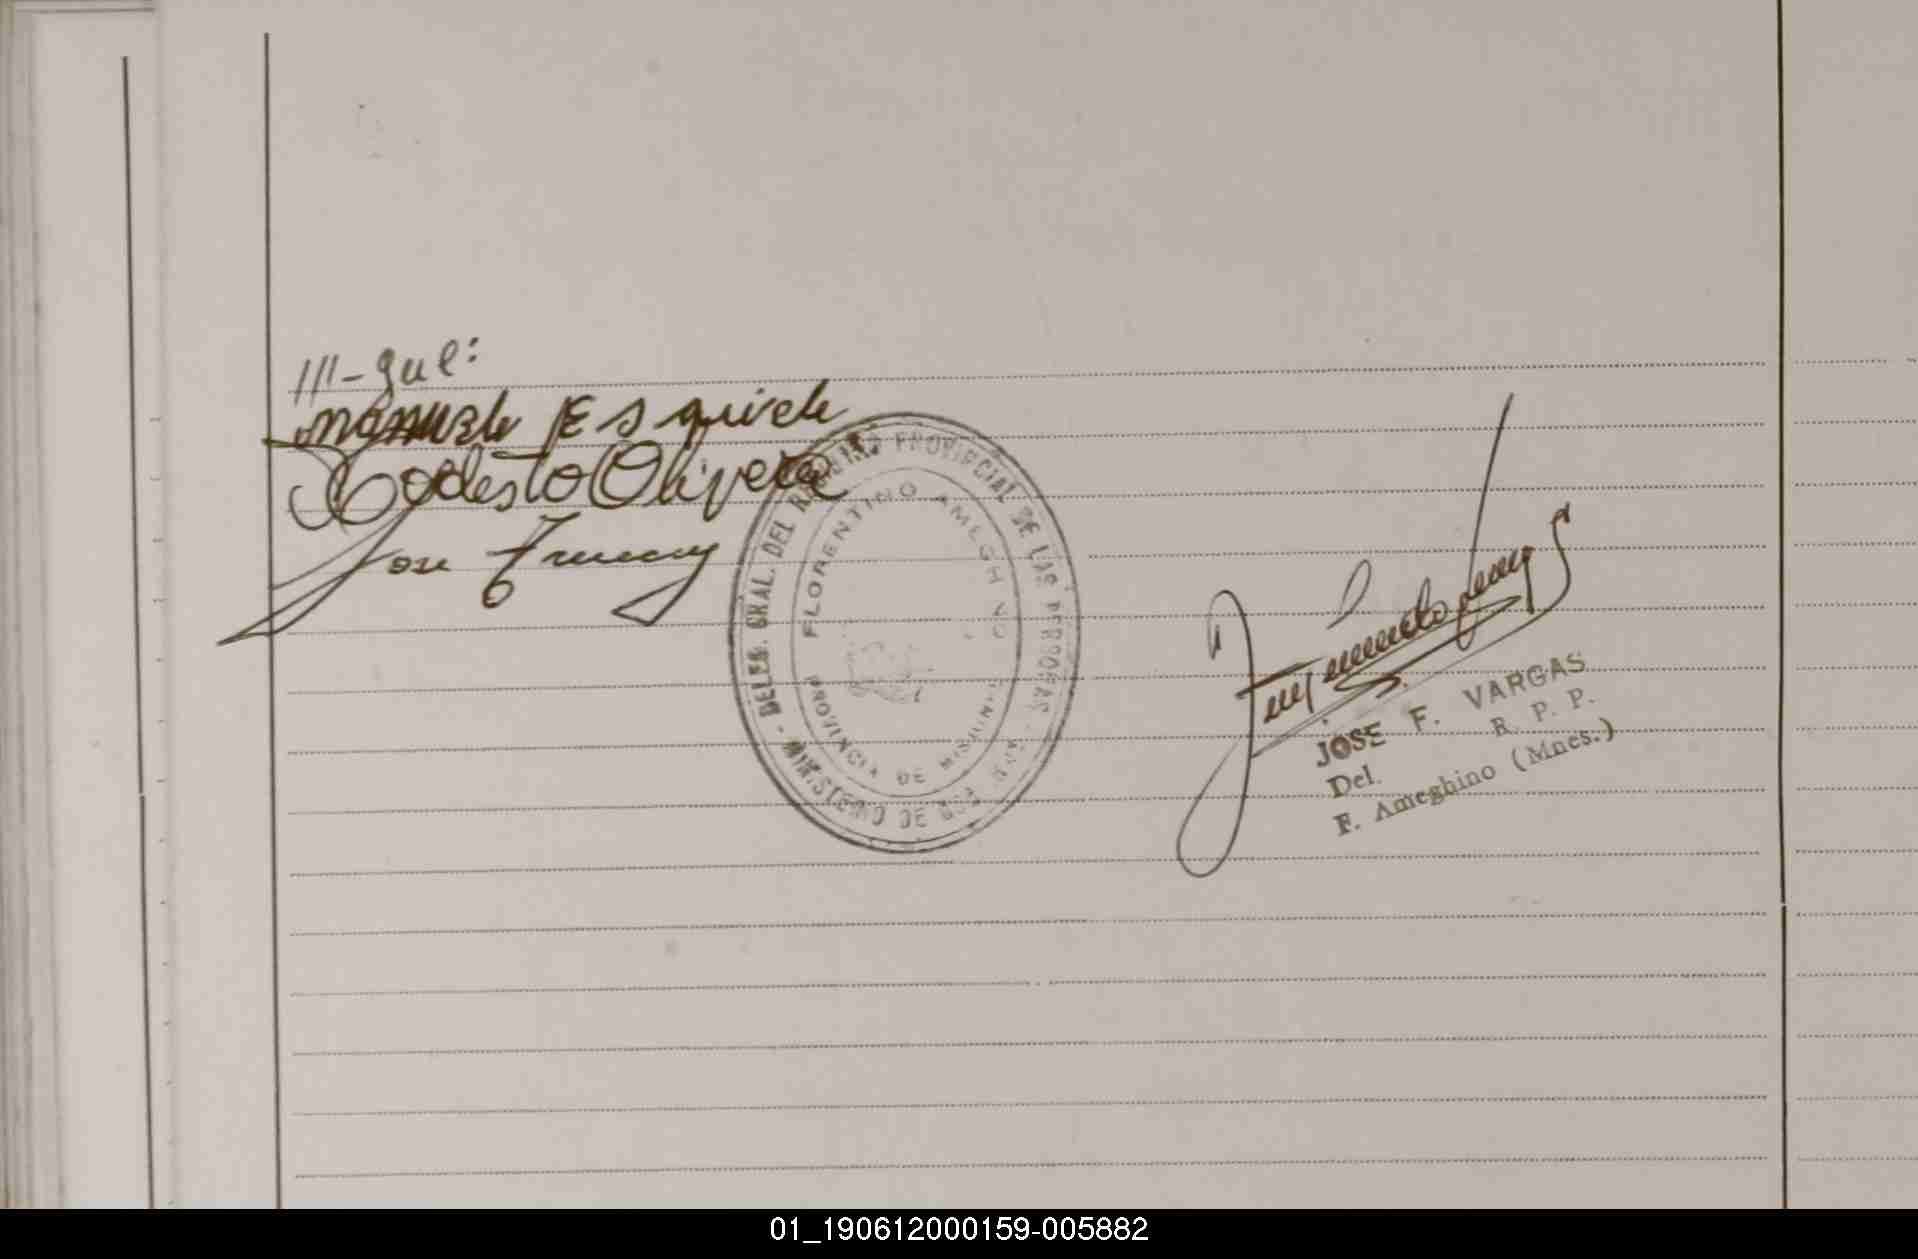 ///-guel:
Manuel Esquivel
Modesto Olivera
Jose
DELEG. GRAL. DEL REGISTRO PROVINCIAL DE LAS PERSONAS
MINISTERIO DE
FLORENTINO AMEGHINO
PROVINCIA DE MISIONES
JOSE F. VARGAS
Del. R. P. P.
F. Ameghino (Mnes.)
01_190612000159-005882